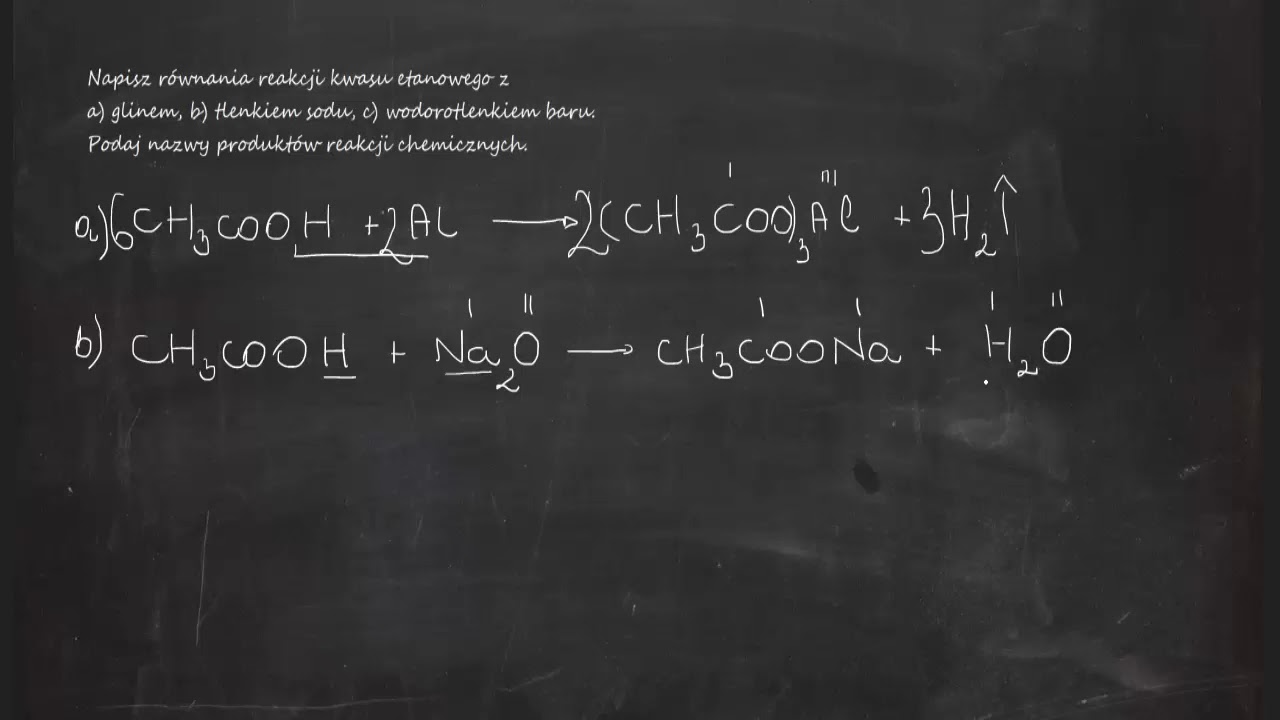 Napisz równania reakcji kwasu etanowego z
a) glinem, b) tlenkiem sodu, c) wodorotlenkiem baru.
Podaj nazwy produktów reakcji chemicznych.
a) 6CH₃COOH + 2Al ⟶ 2(CH₃COO)₃Al + 3H₂↑
I III
b) CH₃COOH + Na₂O ⟶ CH₃COONa + H₂O
I II I I I II